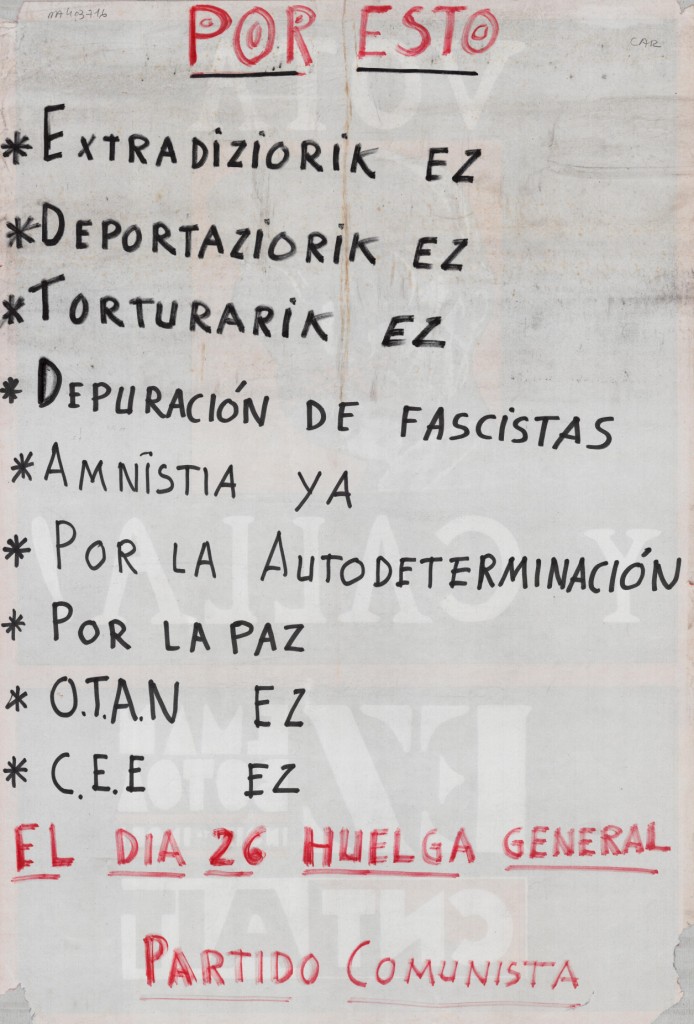 CAR
POR ESTO
* EXTRADIZIORIK EZ
* DEPORTAZIORIK EZ
* TORTURARIK EZ
* DEPURACIÓN DE FASCISTAS
* AMNISTIA YA
* POR LA AUTODETERMINACIÓN
* POR LA PAZ
* O.T.A.N EZ
* C.E.E EZ
EL DIA 26 HUELGA GENERAL
PARTIDO COMUNISTA
VOTA
Y CALLA!
EZ
CNT AIT